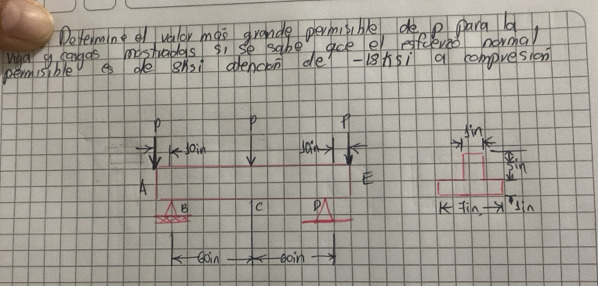 Determine el valor más grande permisible de p para la
viga y cargas mostradas si se sabe que el esfuerzo normal
permisible es de 8ksi atención de -18ksi a compresión
P P P 1in
10in 10in 3in
A E
B C D 7in 1in
60in 60in